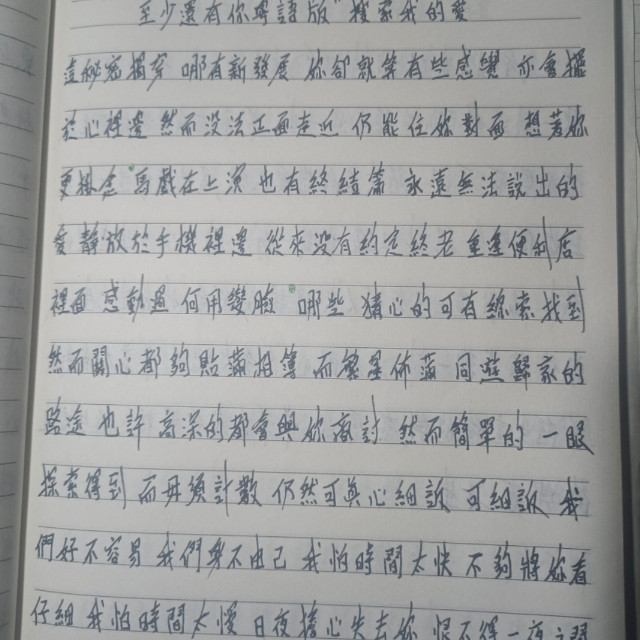 至少還有你粵語版"搜索我的愛
這秘密揭穿 哪有新發展 你卻就算有些感覺 亦會擺
在心裡邊 然而沒法正面走近 仍能在你對面 想著你
更掛念 馬戲在上演 也有終結篇 永遠無法說出的
愛 靜放於手機裡邊 從來沒有約定終老 重逢便利店
裡面 感動過 何用變臉 哪些 獨心的可有線索找到
然而關心都夠貼滿相簿 而繁星佈滿 同遊歸家的
路途 也許 高深的都會與你商討 然而簡單的 一眼
探索得到 而毋須計數 仍然可真心細訴 可細訴 我
們好不容易 我們身不由己 我怕時間太快 不夠將你看
仔細 我怕時間太慢 日夜擔心失去你 恨不得一夜之間